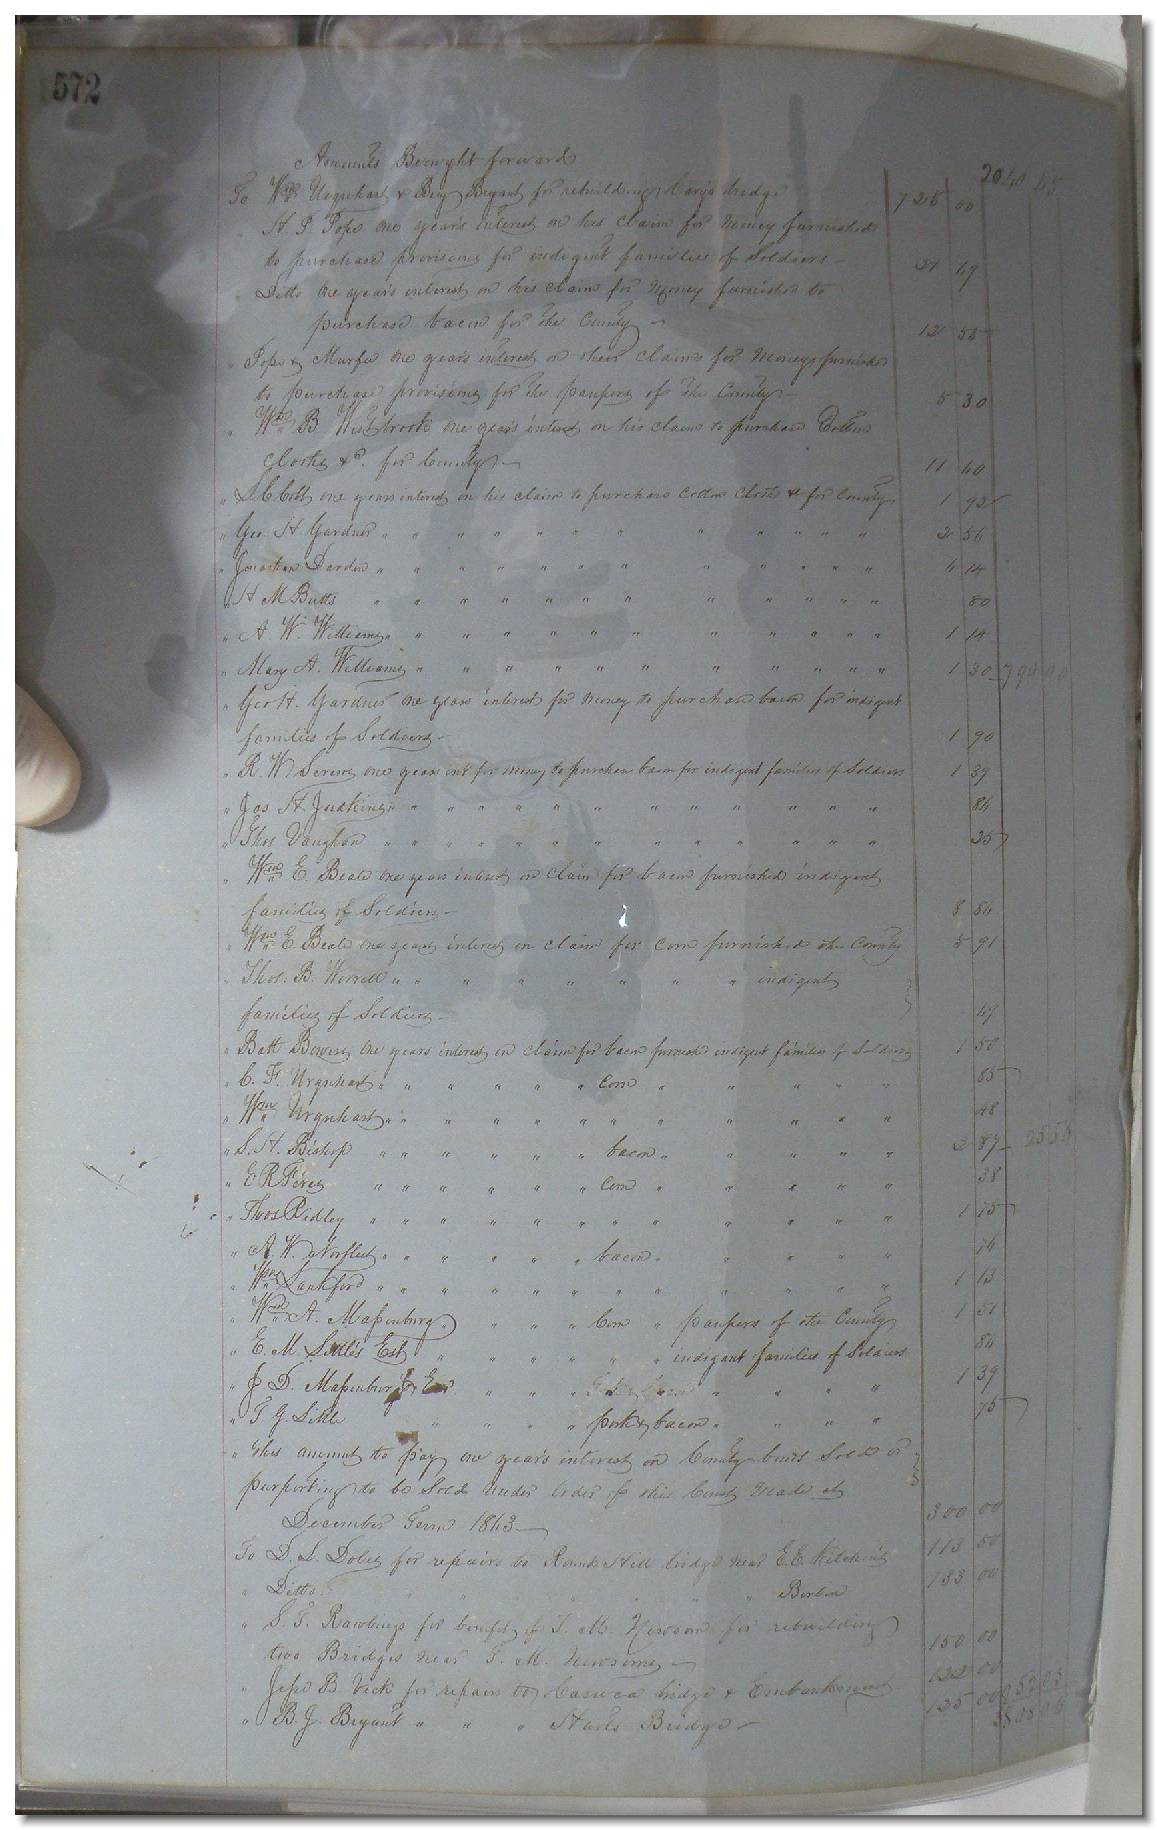 572
Amounts Brought forward 2040 45
To Wm Urquhart & Benj Bryant for rebuilding Cary's bridge 725 00
" H. P. Pope one year's interest on his claim for money furnished
to purchase provisions for indigent families of Soldiers 49
" Ditto one year's interest on his claim for Money furnished to
purchase bacon for the County 12 55
" Pope & Murfee one year's interest on their claims for Moneys furnished
to purchase provisions for the paupers of the County 5 30
" Wm B Westbrook one year's interest on his claim to purchase Cotton
Cloths &c. for County 11 40
" Cobb one years interest on his claim to purchase Cotton Cloth &c for County 1 92
" Geo H Gardner " " " " " " " " " " " 2 56
" Jonathan Darden " " " " " " " " " " " 4 14
" H M Butts " " " " " " " " " " " 80
" A W. Williams " " " " " " " " " " " 1 14
" Mary A. Williams " " " " " " " " " " " 1 30
" Geo H. Gardner one years interest for Money to purchase bacon for indigent
families of Soldiers 1 90
" R. W. Screws one years int for money to purchase bacon for indigent families of Soldiers 1 39
" Jos H Judkins " " " " " " " " " " " 84
" Thos Vaughan " " " " " " " " " " " 25
" Wm E Beale one years interest on claim for bacon furnished indigent
families of Soldiers 8 84
" Wm E. Beale one years interest on claim for corn furnished the County 5 91
" Thos. B. Worrell " " " " " " " " indigent
families of Soldiers 47
" Batt Bowers one years interest on claim for bacon furnished indigent families of Soldiers 1 50
" C. F. Urquhart " " " " " " Corn " " " " " 85
" Wm Urquhart " " " " " " " " " " " " 48
" S. H. Bishop " " " " " " bacon " " " " " 2 87 25 54
" E R " " " " " " Corn " " " " " 38
" Thos Ridley " " " " " " " " " " " " 1 75
" A. W. Norfleet " " " " " " bacon " " " " " 76
" Wm Lankford " " " " " " " " " " " " 1 13
" Wm A. Massenburg " " " Corn " paupers of the County 1 51
" E. M. Little's Est " " " " " indigent families of Soldiers 84
" J D. Massenburg " " " " " " " 1 39
" T. J. Little " " " pork & bacon " " " " 75
" This amount to pay one year's interest on County bonds Sold or
purporting to be Sold under Order of this Court Made at
December Term 1863 300 00
To D. S. Doles for repairs to Round Hill bridge near E.E. Kitchins 113 50
" Ditto " " " " " Berlin 133 00
" S. T. Rawlings for benefit of T. M. Newsom for rebuilding
two Bridges near T. M. Newsoms 150 00
" Jesse B. Vick for repairs to bridge & Embankment 122 00
" B. J. Bryant " " " Bridge 125 00